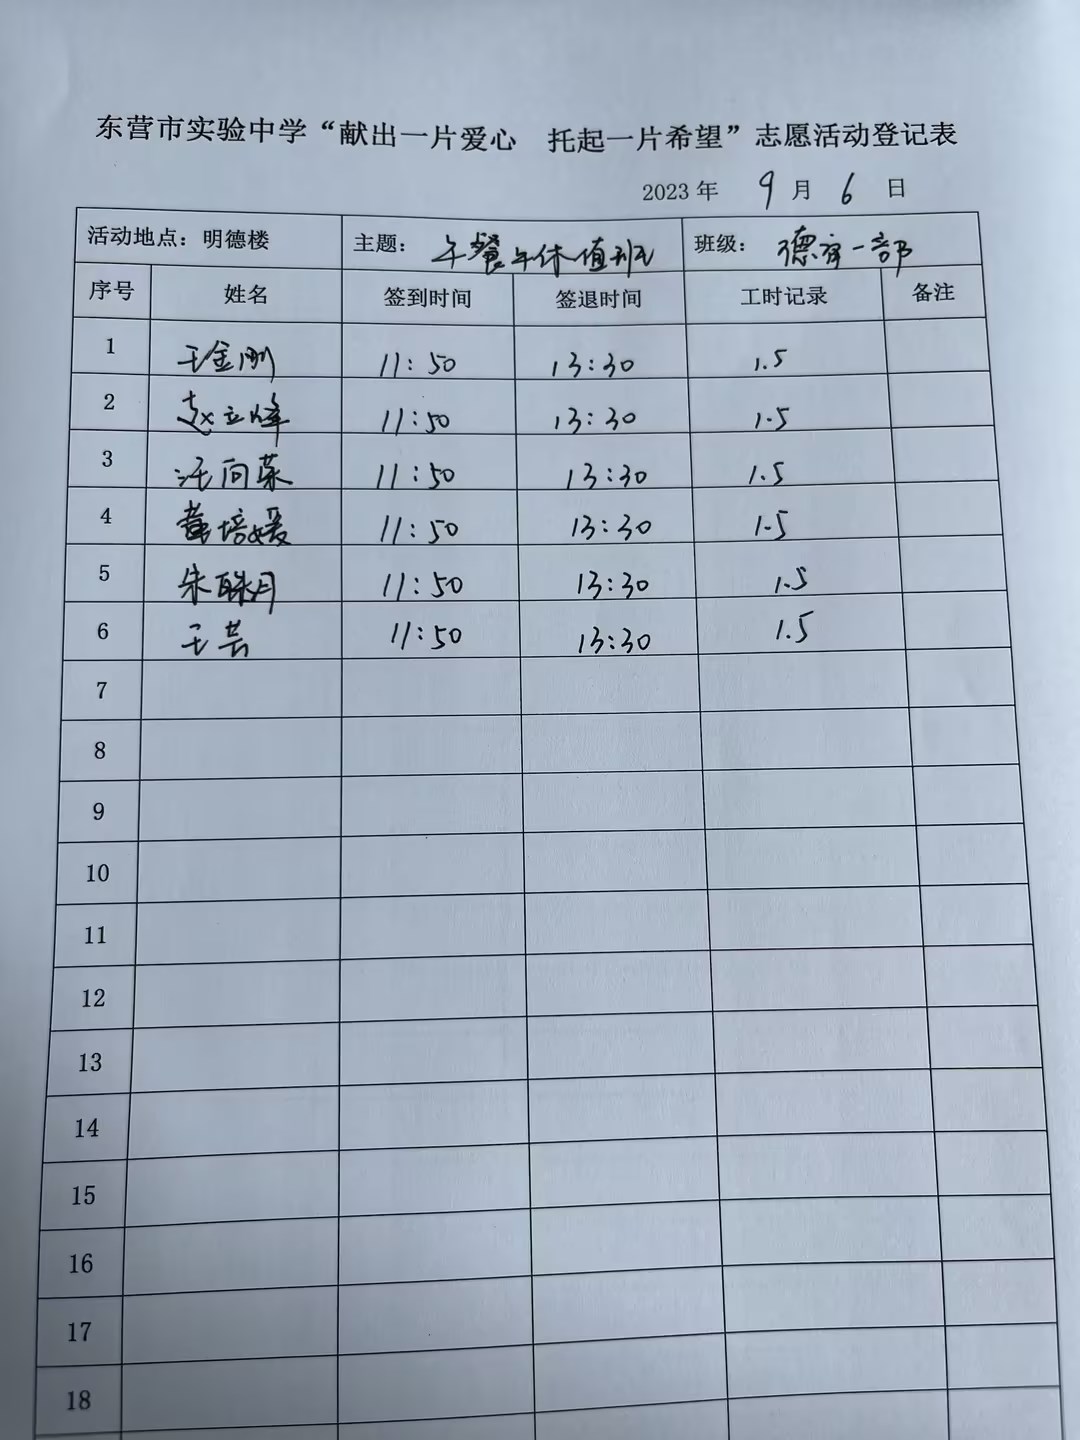 东营市实验中学“献出一片爱心 托起一片希望”志愿活动登记表
2023年 9月 6日
活动地点：明德楼 主题： 午餐午休值班 班级： 德育一部
序号 姓名 签到时间 签退时间 工时记录 备注
1 王金刚 11:50 13:30 1.5
2 赵立峰 11:50 13:30 1.5
3 汪向荣 11:50 13:30 1.5
4 黄培媛 11:50 13:30 1.5
5 朱 11:50 13:30 1.5
6 王芸 11:50 13:30 1.5
7
8
9
10
11
12
13
14
15
16
17
18